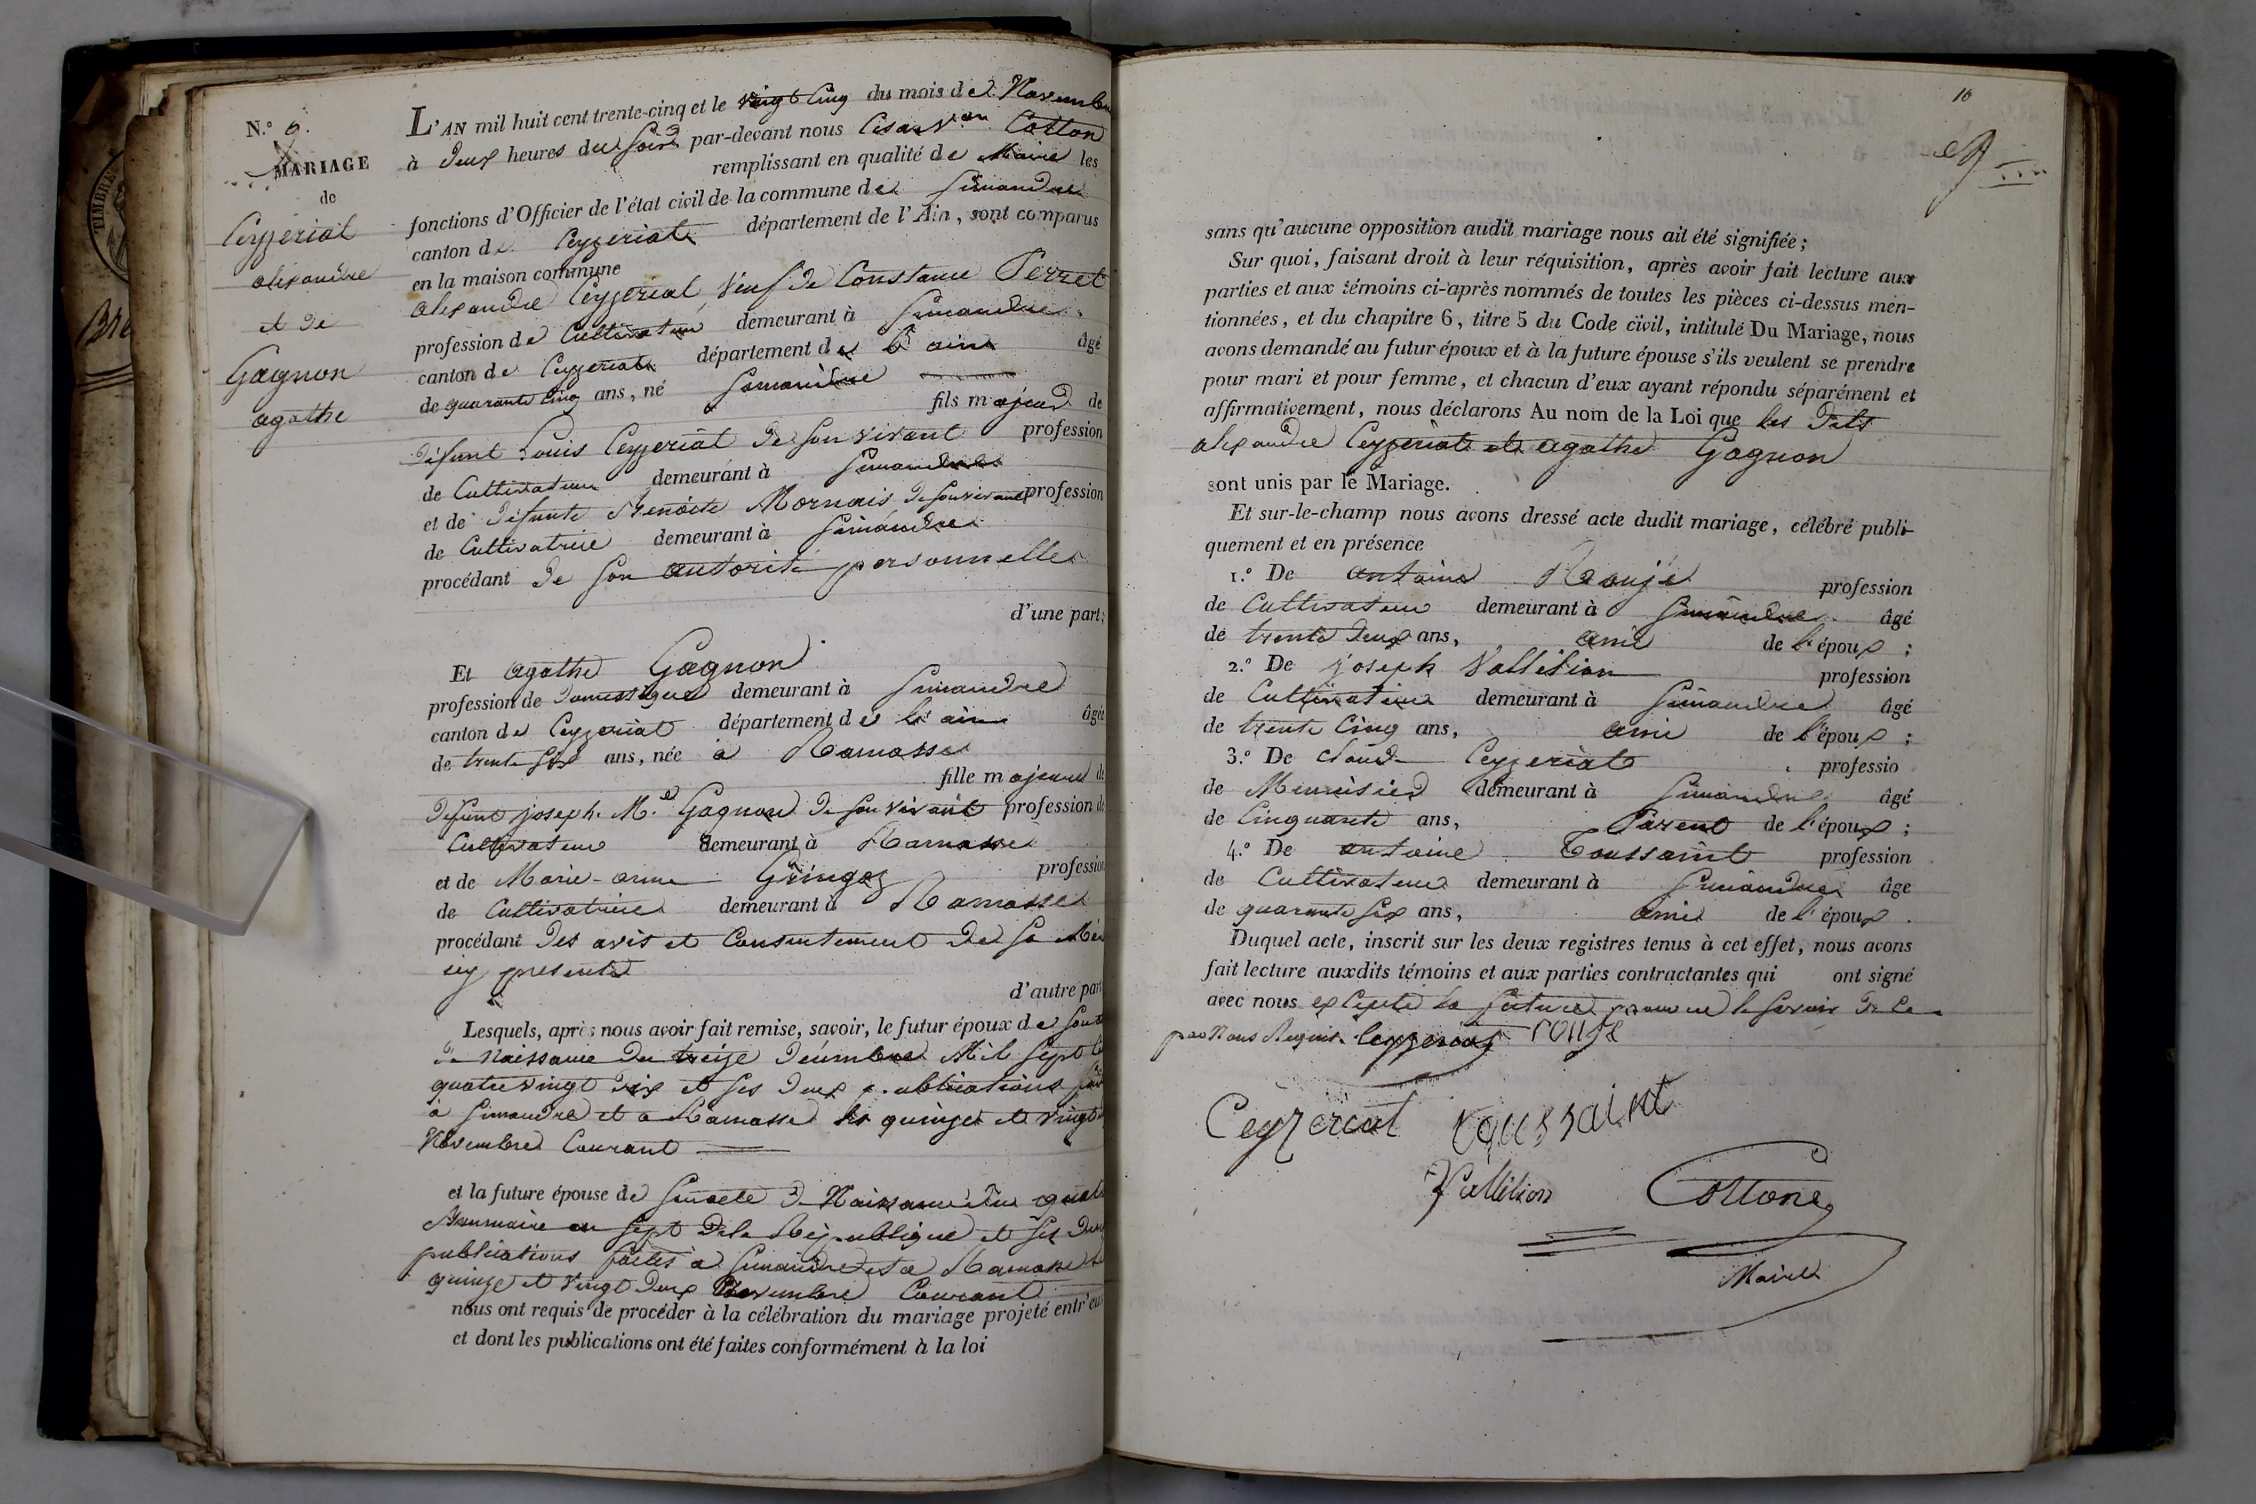 N.º 9.
MARIAGE
de
Ceyzeriat
alexandre
et de
Gagnon
agathe
TIMBRE
Bre
L'AN mil huit cent trente-cinq et le vingt Cinq du mois de Novembre
à deux heures du soir par-devant nous Cotton
remplissant en qualité de Maire les
fonctions d'Officier de l'état civil de la commune de Simandre
canton de Ceyzeriat département de l'Ain, sont comparus
en la maison commune
alexandre Ceyzeriat, Veuf de Constance Perret
profession de Cultivateur demeurant à Simandre
canton de Ceyzeriat département de l'ain âgé
de quarante Cinq ans, né Simandre
fils majeur de
défunt Louis Ceyzeriat de son vivant profession
de Cultivateur demeurant à Simandre
et de défunte Benoite Mornais de son vivant profession
de Cultivatrice demeurant à Simandre
procédant de son autorité personnelle
d'une part;
Et agathe Gagnon
profession de domestique demeurant à Simandre
canton de Ceyzeriat département de l'ain âgée
de trente six ans, née à Ramasse
fille majeure de
défunt joseph. M.ie Gagnon de son vivant profession de
Cultivateur demeurant à Ramasse
et de Marie-anne Gringoz profession
de Cultivatrice demeurant à Ramasse
procédant des avis et Consentement de sa Mère
icy presente
d'autre part
Lesquels, après nous avoir fait remise, savoir, le futur époux de
de Naissance du treize décembre Mil Sept
quatre vingt dix et ses deux publications
à Simandre et a Ramasse les quinze et vingt
Novembre Courant
et la future épouse de de Naissance du
Brumaire an Sept de la République et ses deux
publications faites à Simandre et a Ramasse
quinze et vingt deux Novembre Courant
nous ont requis de procéder à la célébration du mariage projeté entr'eux
et dont les publications ont été faites conformément à la loi
10
sans qu'aucune opposition audit mariage nous ait été signifiée;
Sur quoi, faisant droit à leur réquisition, après avoir fait lecture aux
parties et aux témoins ci-après nommés de toutes les pièces ci-dessus men-
tionnées, et du chapitre 6, titre 5 du Code civil, intitulé Du Mariage, nous
avons demandé au futur époux et à la future épouse s'ils veulent se prendre
pour mari et pour femme, et chacun d'eux ayant répondu séparément et
affirmativement, nous déclarons Au nom de la Loi que les dits
alexandre Ceyzeriat et agathe Gagnon
sont unis par le Mariage.
Et sur-le-champ nous avons dressé acte dudit mariage, célébré publi-
quement et en présence
1.º De antoine Rouje profession
de Cultivateur demeurant à Simandre âgé
de trente deux ans, ami de l'époux;
2.º De joseph Vallition profession
de Cultivateur demeurant à Simandre âgé
de trente Cinq ans, ami de l'époux;
3.º De claude Ceyzeriat professio
de Menuisier demeurant à Simandre âgé
de Cinquante ans, Parent de l'époux;
4.º De antoine Toussaint profession
de Cultivateur demeurant à Simandre âge
de quarante six ans, ami de l'époux.
Duquel acte, inscrit sur les deux registres tenus à cet effet, nous avons
fait lecture auxdits témoins et aux parties contractantes qui ont signé
avec nous excepté la future pour ne le savoir de ce
par Nous Requise Ceyzeriat rouje
Ceyzeriat toussaint
Vallition Cottone
Maire